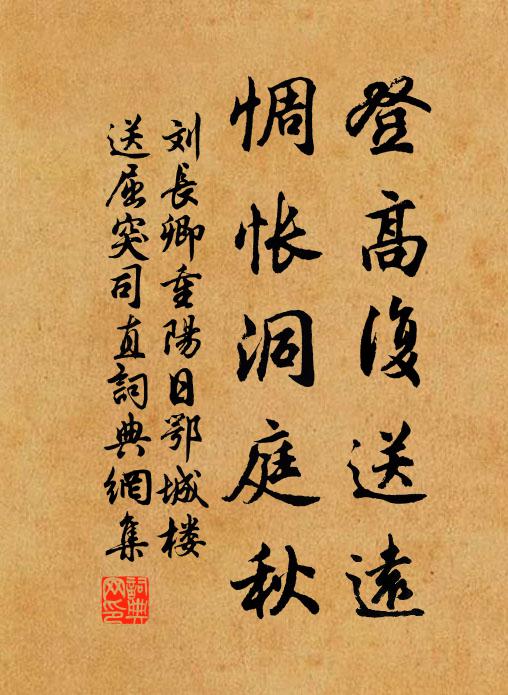 登高復送遠
惆怅洞庭秋
刘長卿重陽日鄂城楼
送屈突司直詞典網集
詞典
网印